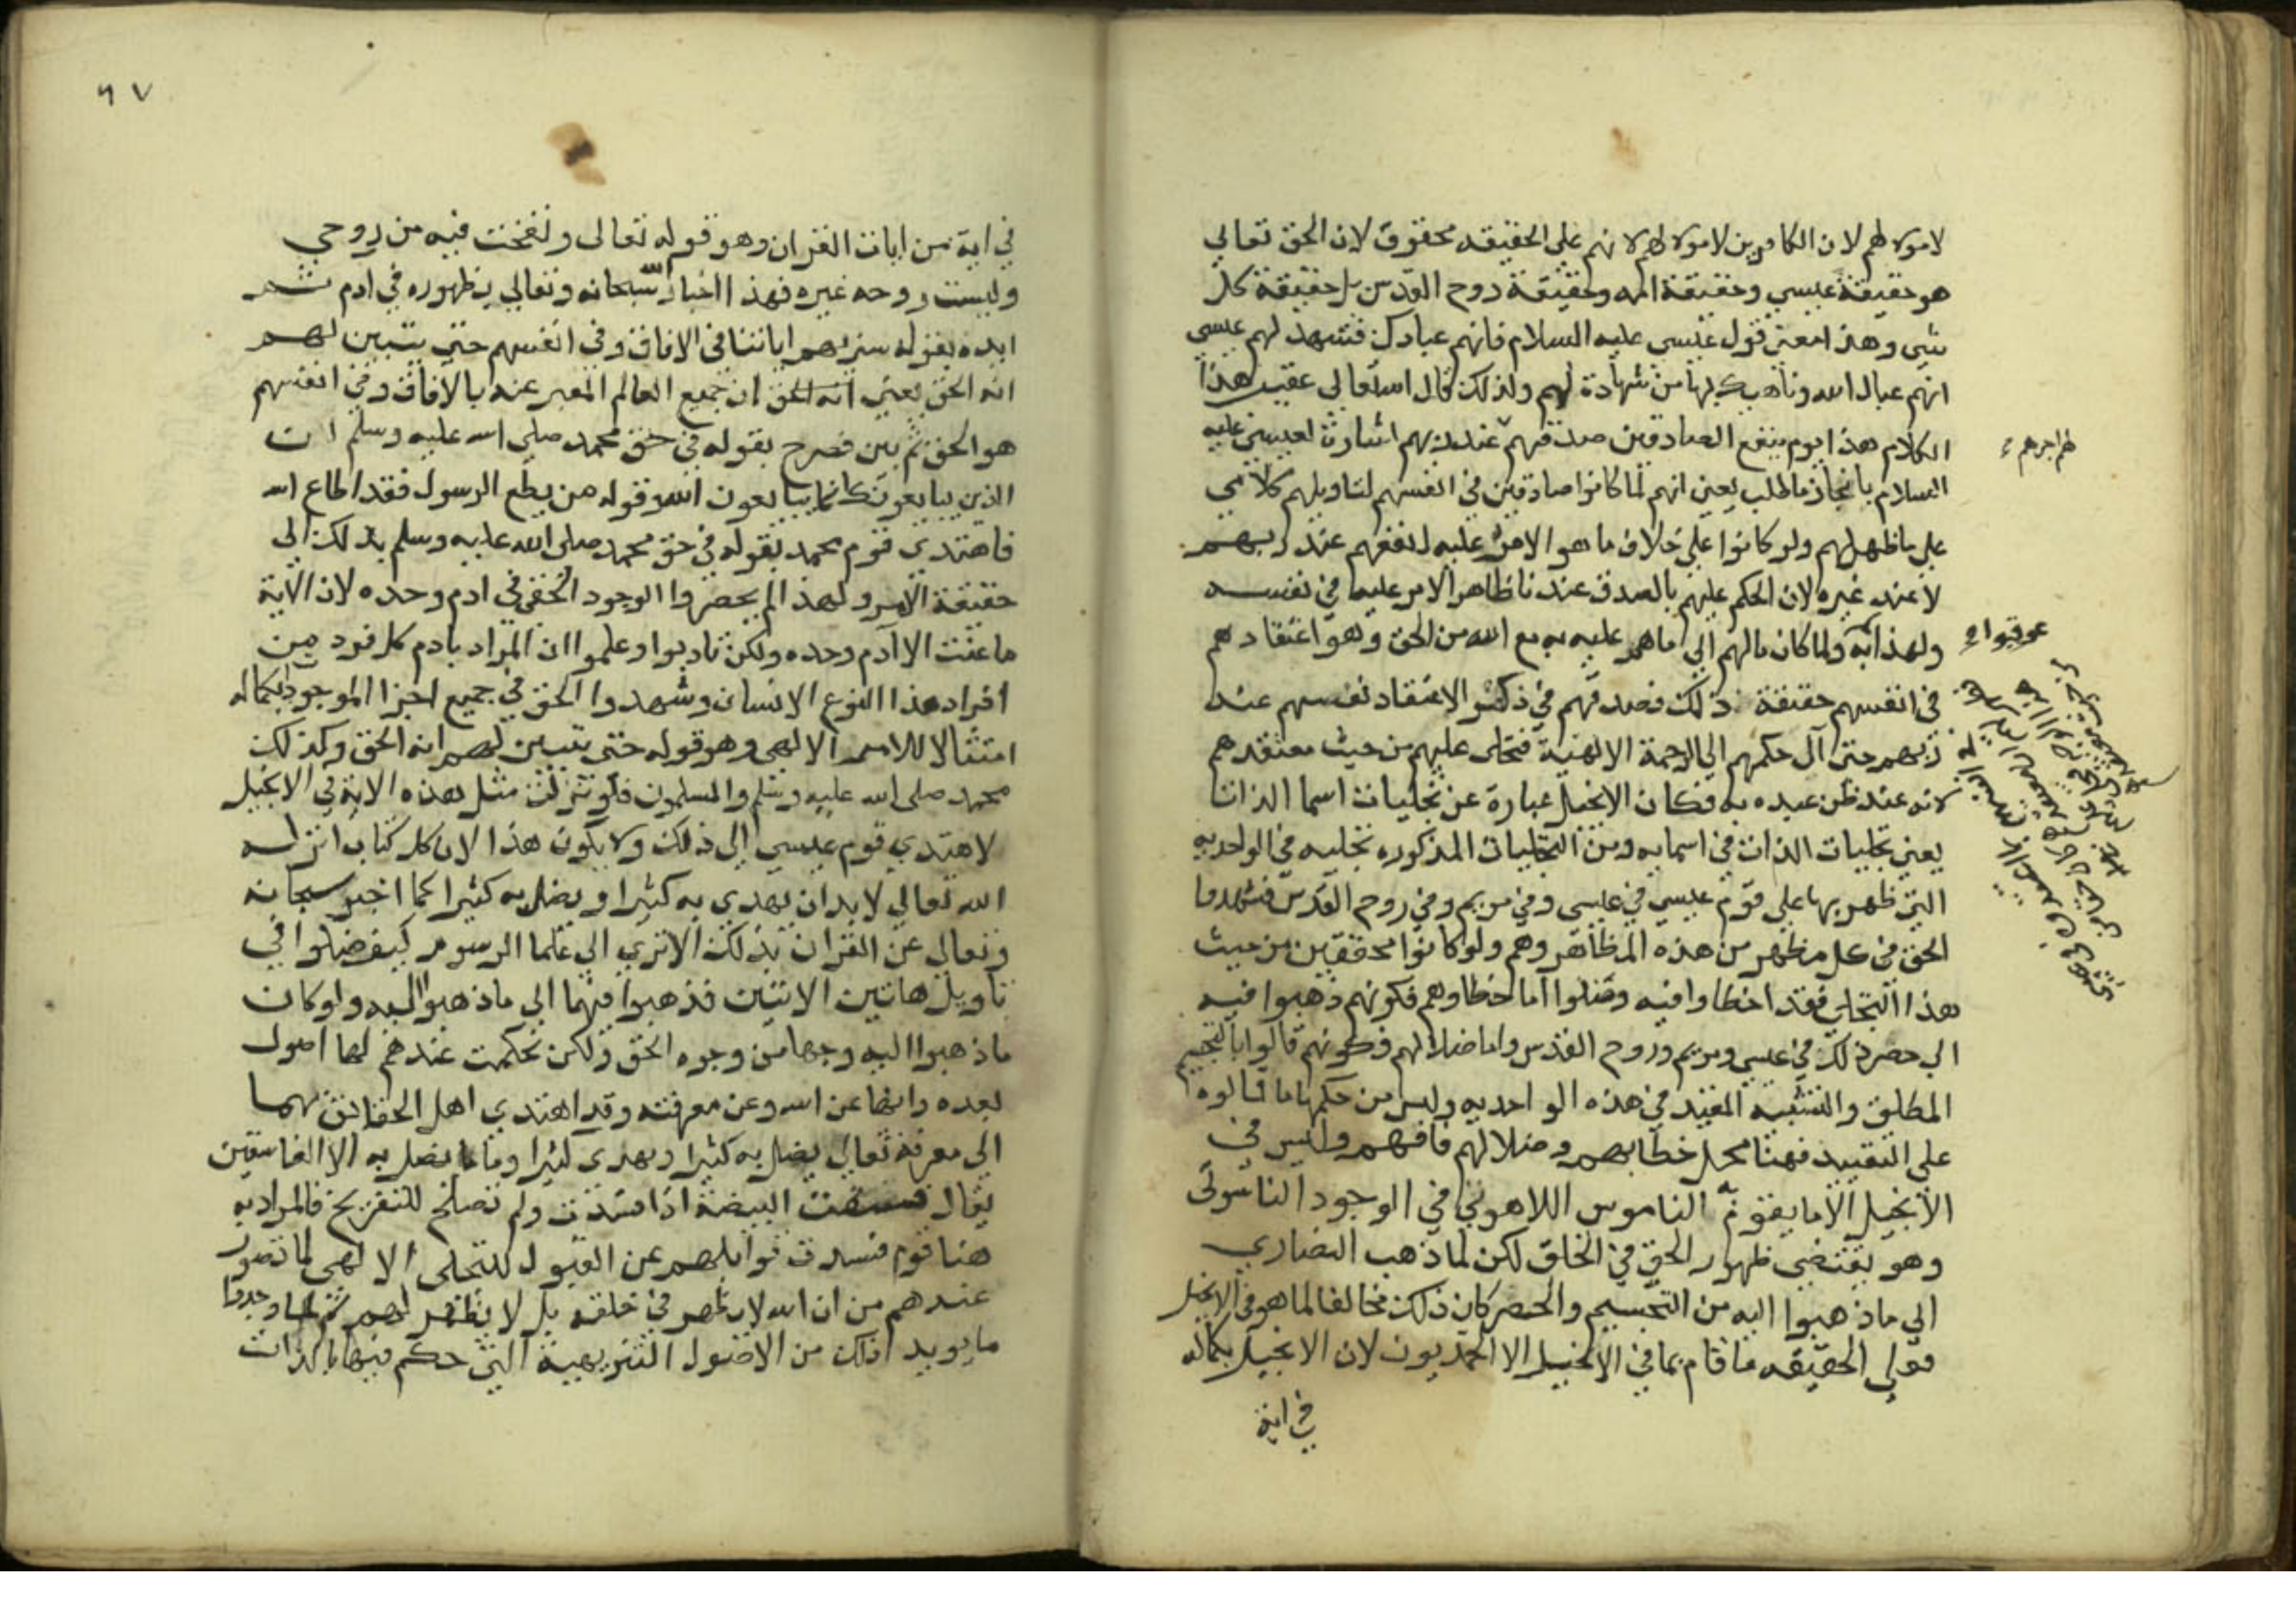 لامولا لهم لان الكافرين لامولا لهم لانهم على الحقيقه محقوق لان الحق تعالي
هو حقيقة عيسي وحقيقة امه وحقيقة روح القدس بل حقيقة كل
شي وهذا معني قول عيسي عليه السلام فانهم عبادك فشهد لهم عيسي
انهم عباد الله وناهيك بها من شهادة لهم ولذلك قال الله تعالى عقيب هذا
الكلام هذا يوم ينفع الصادقين صدقهم عند ربهم اشارة لعيسي عليه
السلام بانجاز ما طلب يعني انهم لما كانوا صادقين في انفسهم لتاويلهم كلامي
علي ما ظهر لهم ولو كانوا علي خلاف ما هو الامر عليه لنفعهم عند ربهم
لا عند غيره لان الحكم عليهم بالصدق عندنا ظاهر الامر عليما في نفسه
ولهذا ولما كان مالهم الي ما هم عليه به مع الله من الحق وهو اعتقادهم
في انفسهم حقيقة ذلك فصدقهم في ذلك الاعتقاد نفسهم عند
ربهم حتى آل حكمهم الي الرحمة الالهية فتجلى عليهم من حيث معتقدهم
لانه عند ظن عبده به فكان الانجيل عبارة عن تجليات اسما الذات
يعني تجليات الذات في اسمايه ومن التجليات المذكوره تجليه في الواحديه
التي ظهر بها علي قوم عيسي في عيسى وفي مريم وفي روح القدس فشهدوا
الحق في كل مظهر من هذه المظاهر وهم ولو كانوا محققين من حيث
هذا التجلي فقد اخطاوا فيه وضلوا اما خطاوهم فكونهم ذهبوا فيه
الي حصر ذلك في عيسي ومريم وروح القدس واما ضلالهم فكونهم قالوا بالتجسيم
المطلق والتشبيه المقيد في هذه الواحديه وليس من حكمها ما قالوه
علي التقييد فهذا محل خطاهم وضلالهم فافهم وليس في
الانجيل الا ما يقوم به الناموس اللاهوتي في الوجود الناسوتي
وهو يقتضي ظهور الحق في الخلق لكن لما ذهب النصاري
الي ما ذهبوا اليه من التجسيم والحصر كان ذلك مخالفا لما هو في الانجيل
فعلي الحقيقه ما قام بما في الانجيل الا المحمديون لان الانجيل بكماله
في اية
عوقبوا
٦٧
في اية من ايات القران وهو قوله تعالى ونفخت فيه من روحي
وليست روحه غيره فهذا اخبار الله سبحانه وتعالي بظهوره في ادم ثم
ايده بقوله سنريهم اياتنا في الافاق وفي انفسهم حتي يتبين لهم
انه الحق يعني انه الحق ان جميع العالم المعبر عنه بالافاق وفي انفسهم
هو الحق ثم بين فصرح بقوله في حق محمد صلي الله عليه وسلم ان
الذين يبايعونك انما يبايعون الله وقوله من يطع الرسول فقد اطاع الله
فاهتدي قوم محمد بقوله في حق محمد صلى الله عليه وسلم بذلك الي
حقيقة الامر ولهذا لم يحصروا الوجود الحقي في ادم وحده لان الاية
ما عنت الا آدم وحده ولكن تادبوا وعلموا ان المراد بادم كل فرد من
افراد هذا النوع الانسان وشهدوا الحق في جميع اجزا الموجودات بكماله
امتثالا للامر الالهي وهو قوله حتى يتبين لهم انه الحق وكذلك
محمد صلى الله عليه وسلم والمسلمون فلو نزلت مثل هذه الاية في الانجيل
لاهتدي قوم عيسي الى ذلك ولا يكون هذا لان كل كتاب انزله
الله تعالي لا بد ان يهدي به كثيرا ويضل به كثيرا كما اخبر سبحانه
وتعالي عن القران بذلك الا ترى الي علما الرسوم كيف ضلوا في
تاويل هاتين الايتين فذهبوا فيهما الى ما ذهبوا اليه ولو كان
ما ذهبوا اليه وجها من وجوه الحق ولكن تحكمت عندهم لها اصول
بعده وابها عن الله وعن معرفته وقد اهتدي اهل الحقائق بهما
الي معرفته تعالي يضل به كثيرا ويهدى كثيرا وما يضل به الا الفاسقين
يقال فسقت البيضة اذا فسدت ولم تصلح للتفريخ فالمراد به
هنا قوم فسدت قوابلهم عن القبول للتجلى الالهى لما تصور
عندهم من ان الله لا يظهر في خلقه بل لا يظهر لهم ثم لما وجدوا
ما يويد ذلك من الاصول التنزيهية التي حكم فيها بالذات